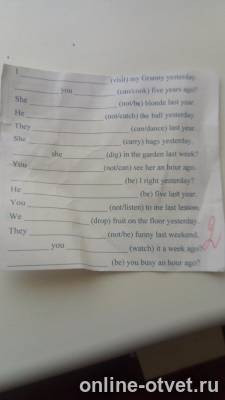 I ____________ (visit) my Granny yesterday.
____________ you ____________ (can/cook) five years ago?
She ____________ (not/be) blonde last year.
He ____________ (not/catch) the ball yesterday.
They ____________ (can/dance) last year.
She ____________ (carry) bags yesterday.
____________ she ____________ (dig) in the garden last week?
You ____________ (not/can) see her an hour ago.
____________ (be) I right yesterday?
He ____________ (be) five last year.
You ____________ (not/listen) to me last lesson.
We ____________ (drop) fruit on the floor yesterday.
They ____________ (not/be) funny last weekend.
____________ you ____________ (watch) it a week ago?
____________ (be) you busy an hour ago?
2
online-otvet.ru